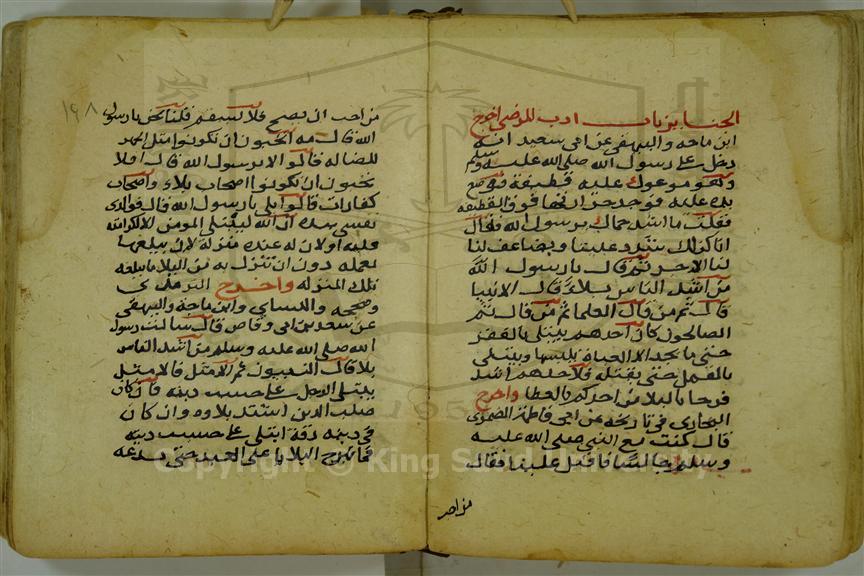 الجنايز باب ادب المرضى اخرج
ابن ماجه والبيهقي عن ابي سعيد انه
دخل على رسول الله صلى الله عليه وسلم
وهو موعوك عليه قطيفة فوضع
يده عليه فوجد حرارتها فوق القطيفة
فقلت ما اشد حماك يرسول الله فقال
انا كذلك يشدد علينا ويضاعف لنا
لنا الاجر ثم قال يا رسول الله
من اشد الناس بلاء قال الانبيا
قال ثم من قال العلما ثم من قال ثم
الصالحون كان احدهم يبتلى بالفقر
حتى ما يجد الا العباة يلبسها ويبتلى
بالقمل حتى يقتله ولاحدهم اشد
فرحا بالبلا من احدكم بالعطا واخرج
البخاري في تاريخه عن ابي فاطمة الضمري
قال كنت مع النبي صلى الله عليه
وسلم جالسا فاقبل علينا فقال
من احب
١٩٨
من احب ان يصح فلا يسقم قلنا نحن يا رسول
الله قال مه اتحبون ان تكونوا مثل الحمر
الضاله قالوا لا يرسول الله قال افلا
تحبون ان تكونوا اصحاب بلاء واصحاب
كفارات قالوا بلى يا رسول الله قال فوالذي
نفسي بيده ان الله ليبتلي المومن الا لكرامته
عليه او لان له عنده منزلة لان يبلغها
بعمله دون ان تنزل به من البلا ما يبلغه
تلك المنزله واخرج الترمذي
وصححه والنساي وابن ماجة والبيهقي
عن سعد بن ابي وقاص قال سالت رسول
الله صلى الله عليه وسلم من اشد الناس
بلا قال النبيون ثم الامثل فالامثل
يبتلى الرجل على حسب دينه فان كان
صلب الدين اشتد بلاوه وان كان
في دينه رقة ابتلي على حسب دينه
فما تبرح البلايا على العبد حتى تدعه
Copyright © King Saud University